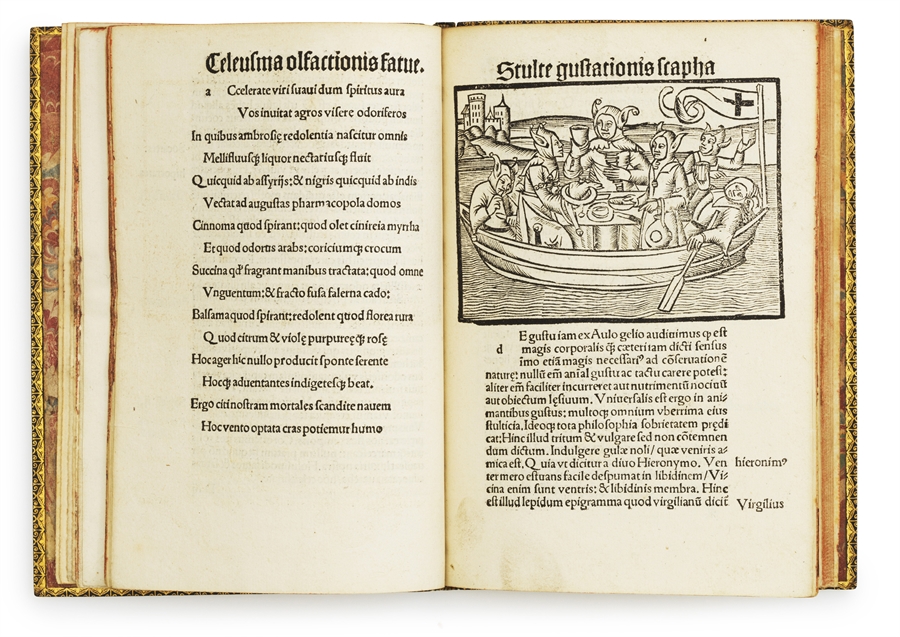 Celeusma olfactionis fatue.
a Ccelerate viri suaui dum spiritus aura
Vos inuitat agros visere odoriferos
In quibus ambrosę redolentia nascitur omnis
Mellifluusq; liquor nectariusq; fluit
Quicquid ab assyrijs: & nigris quicquid ab indis
Vectat ad augustas pharmacopola domos
Cinnoma quod spirant: quod olet cinireia myrrha
Et quod odorus arabs: coriciumq; crocum
Succina qd' fragrant manibus tractata: quod omne
Vnguentum: & fracto fusa falerna cado:
Balsama quod spirant: redolent quod florea rura
Quod citrum & violę purpureęq; rosę
Hoc ager hic nullo producit sponte serente
Hocq; aduentantes indigetesq; beat.
Ergo citi nostram mortales scandite nauem
Hoc vento optata cras potiemur humo
Stulte gustationis scapha
E gustu iam ex Aulo gelio audiuimus ꝙ est
d magis corporalis q̃ cæteri iam dicti sensus
imo etiã magis necessariꝰ ad cõseruationẽ
naturę: nullũ em̃ anĩal gustu ac tactu carere potest:
aliter em̃ faciliter incurreret aut nutrimentũ nociuũ
aut obiectum lęsuum. Vniuersalis est ergo in ani-
mantibus gustus: multoq; omnium vberrima eius
stulticia. Ideoq; tota philosophia sobrietatem prędi
cat: Hinc illud tritum & vulgare sed non cõtemnen
dum dictum. Indulgere gulæ noli/ quæ veniris a-
mica est. Quia vt dicitur a diuo Hieronymo. Ven
hieronimꝰ
ter mero estuans facile despumat in libidinem/ Vi-
cina enim sunt ventris: & libidinis membra. Hinc
est illud lepidum epigramma quod virgilianũ dicit
Virgilius